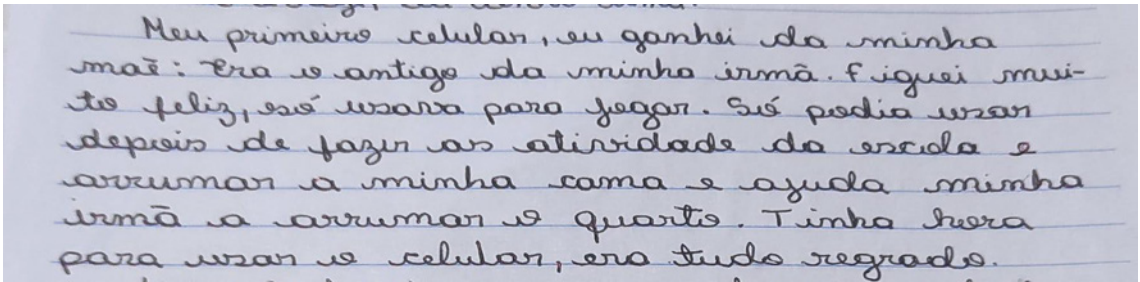 Meu primeiro celular, eu ganhei da minha
maẽ: Era o antigo da minha irmã. Fiquei mui-
to feliz, e só usava para jogar. Só podia usar
depois de fazer as atividade da escola e
arrumar a minha cama e ajuda minha
irmã a arrumar o quarto. Tinha hora
para usar o celular, era tudo regrado.